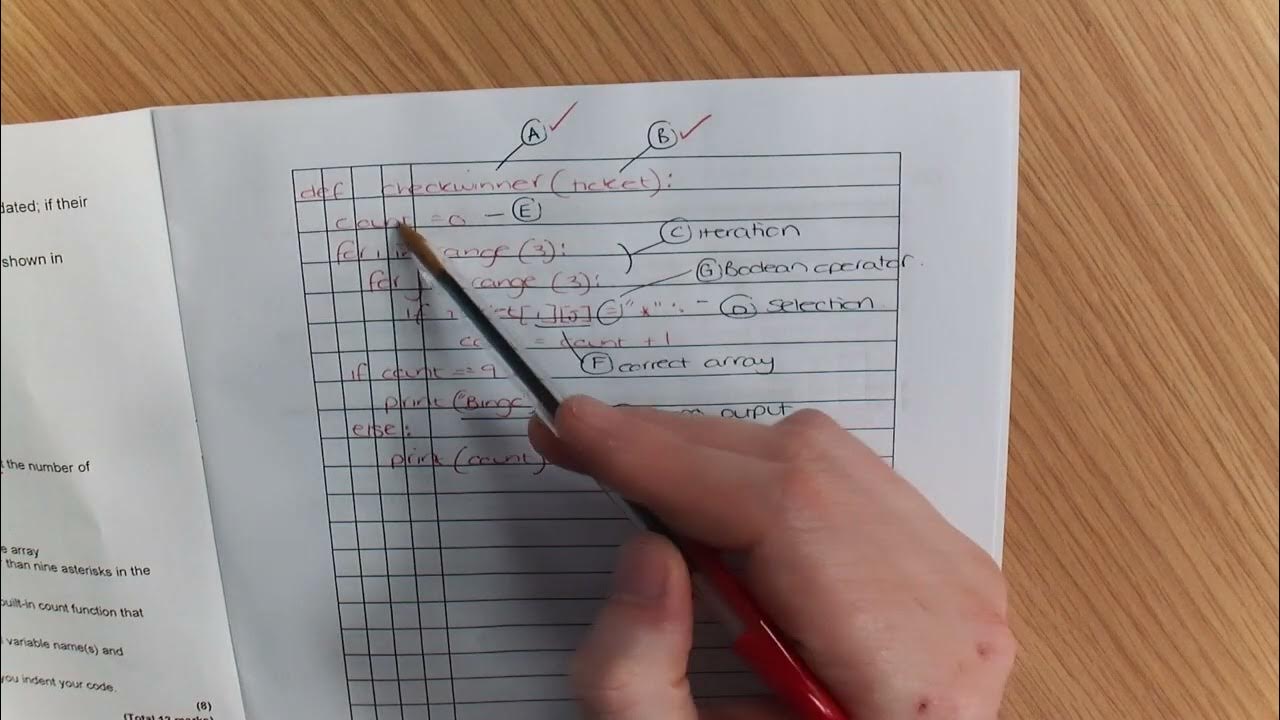 dated; if their
shown in
the number of
e array
than nine asterisks in the
built-in count function that
variable name(s) and
you indent your code.
(8)
(Total 12 marks)
A ✓
B ✓
def checkwinner(ticket):
count = 0 – E
for i in range (3):
C iteration
for range (3):
G Boolean operator.
if [i][j] = "*":
- D selection
count + 1
F correct array
if count == 9
print("Bingo
output
else:
print(count)